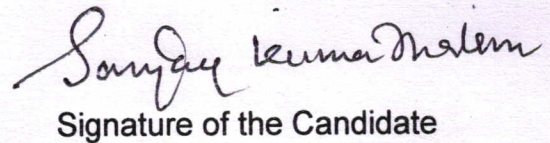 Sanjay Kumar
Signature of the Candidate